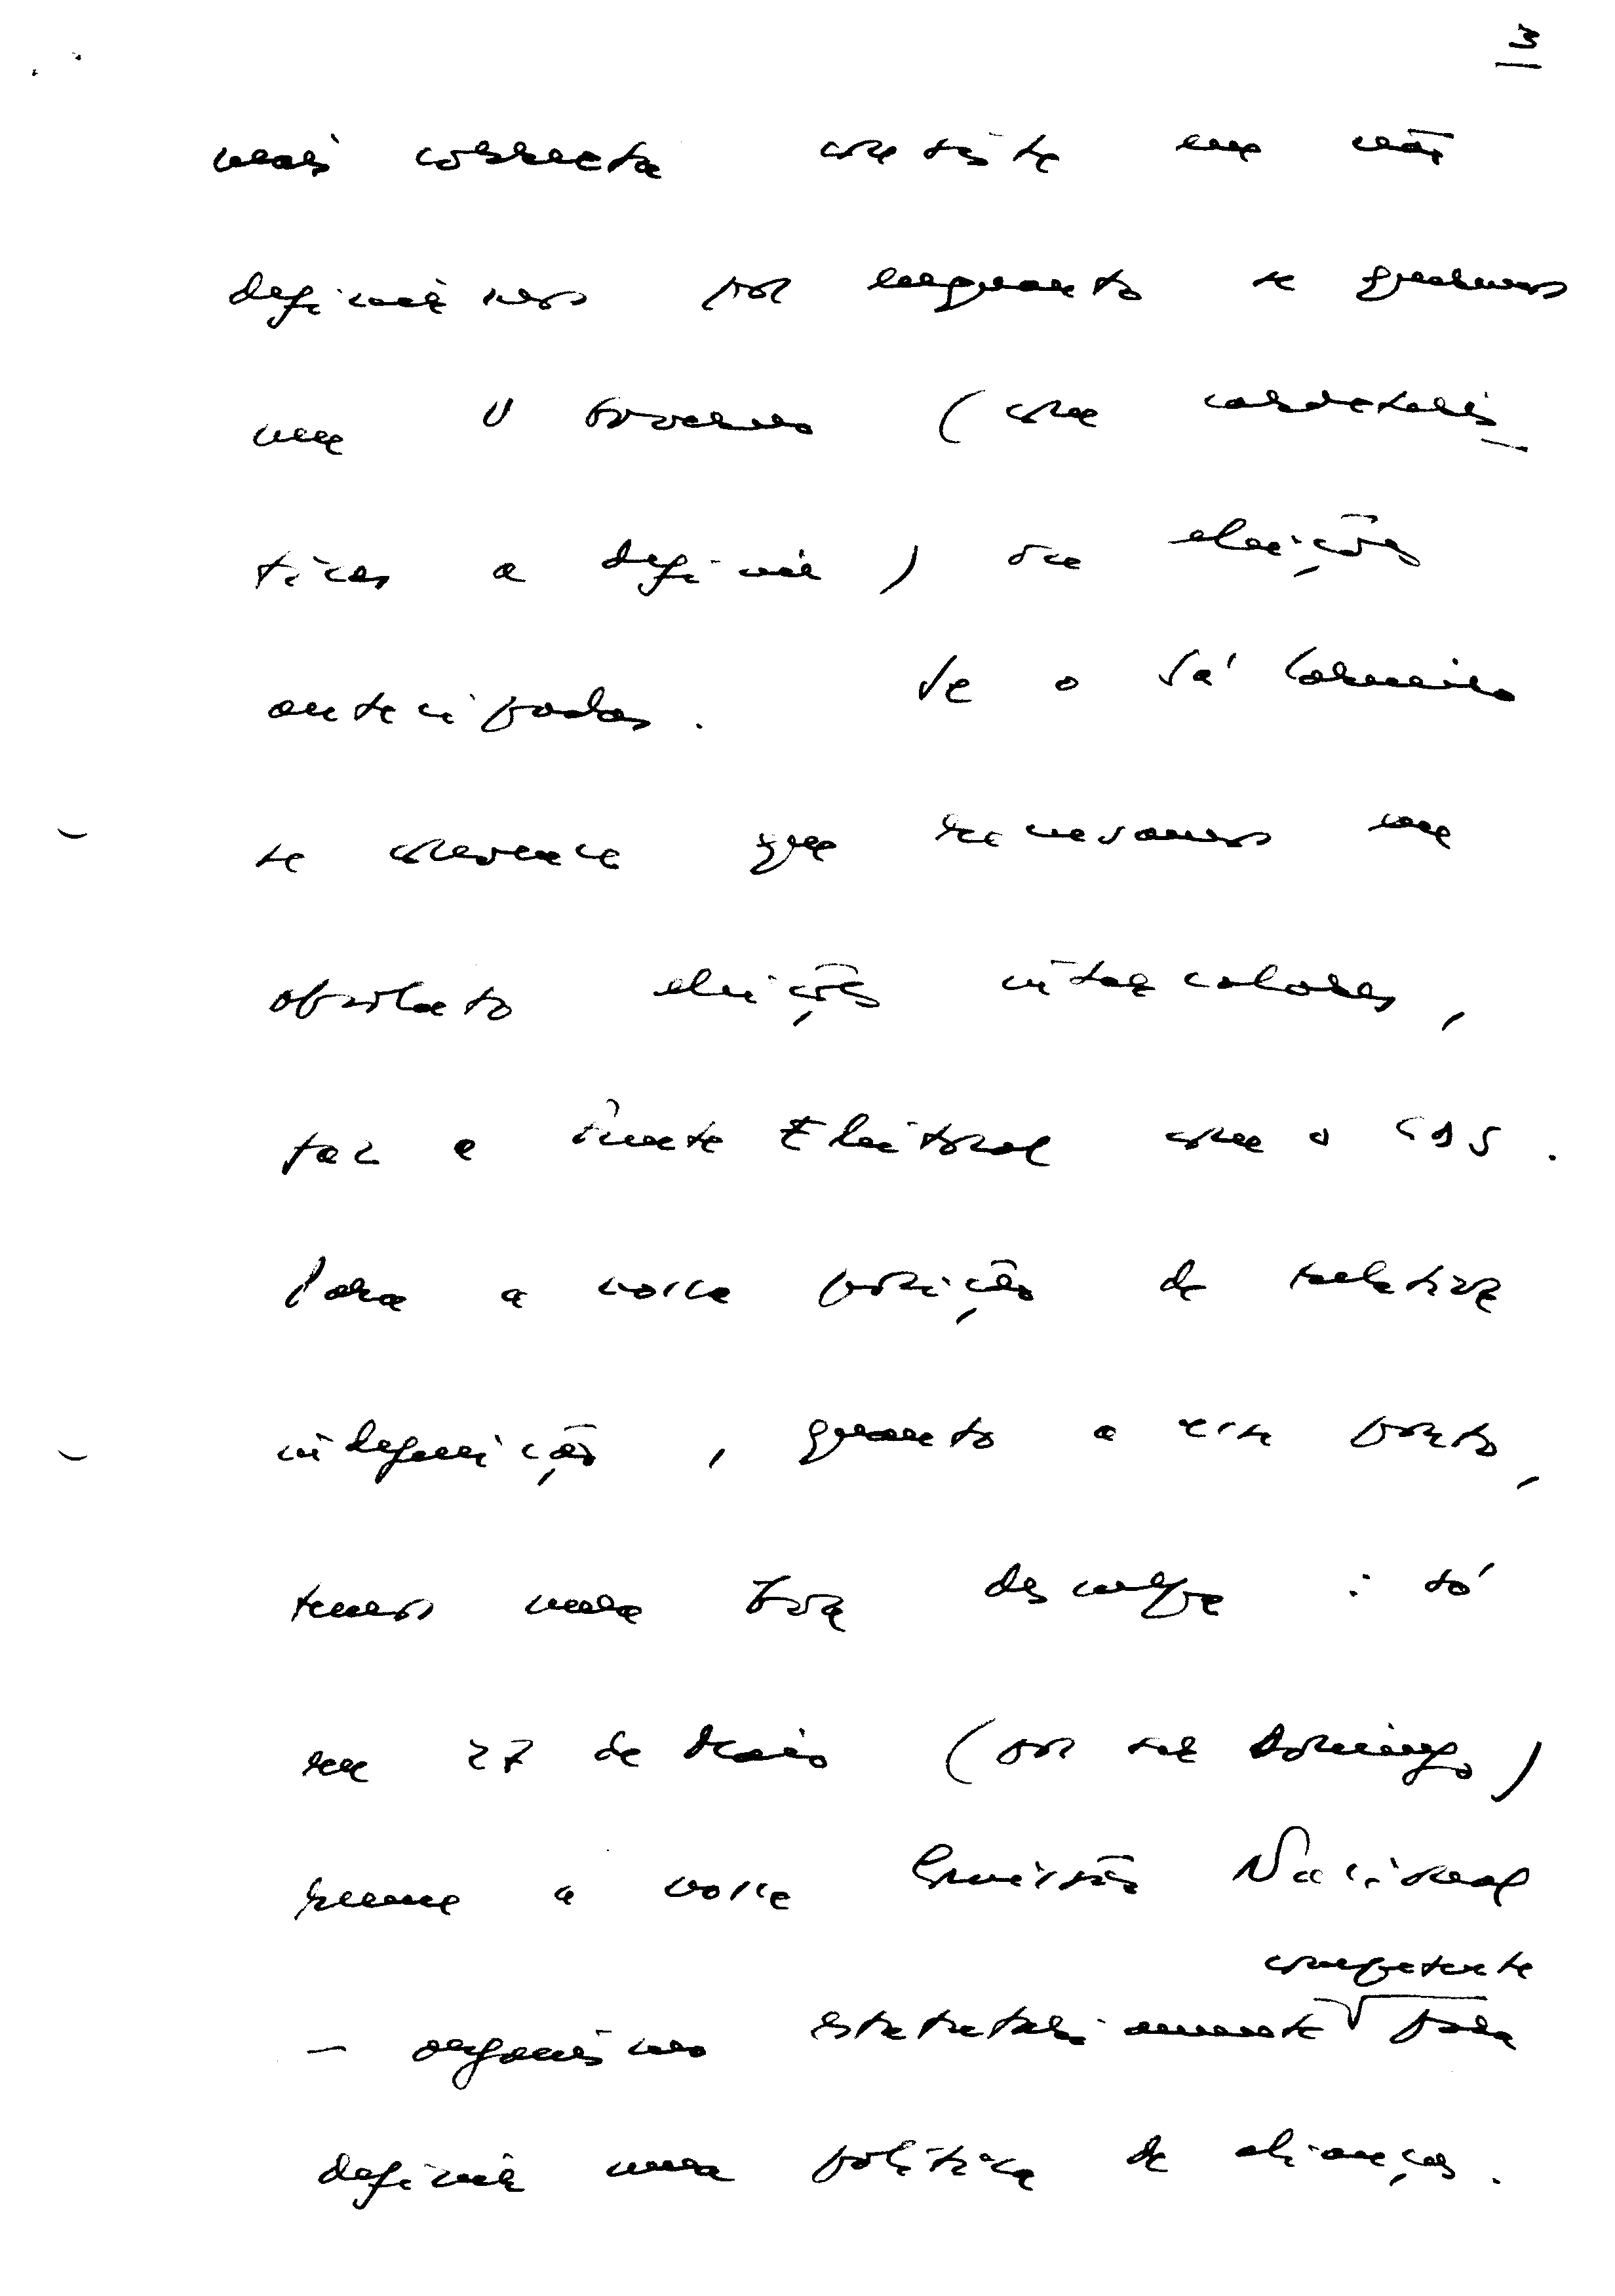 3
mais correcta consiste em não
definirmos por enquanto se queremos
um V Governo (com caracterís-
ticas a definir) ou eleições
antecipadas. Se o Sá Carneiro
se convence que recusamos em
absoluto eleições intercalares,
faz a Frente Eleitoral com o CDS.
Para a nossa posição de relativa
indefinição, quanto a este ponto,
temos uma boa desculpa: só
em 27 de Maio (por ser Domingo)
reune a nossa Comissão Nacional
competente
— organismo estatutariamente √ para
definir uma política de alianças.